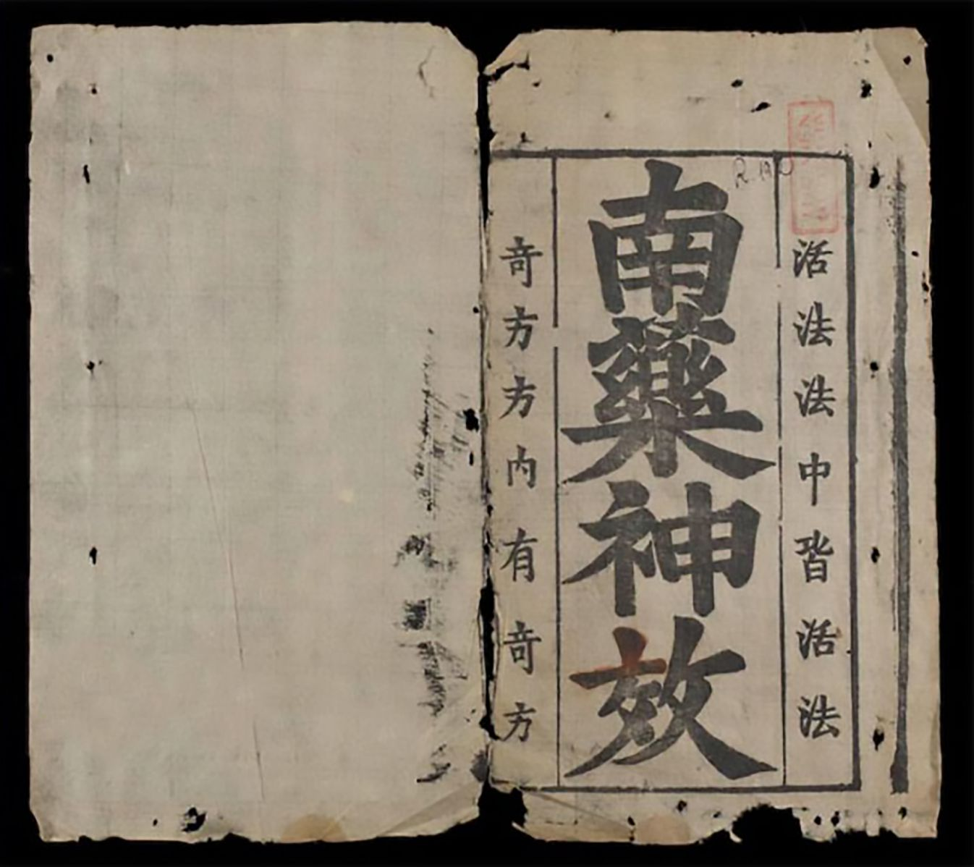 活法法中皆活法
南藥神效
奇方方内有奇方